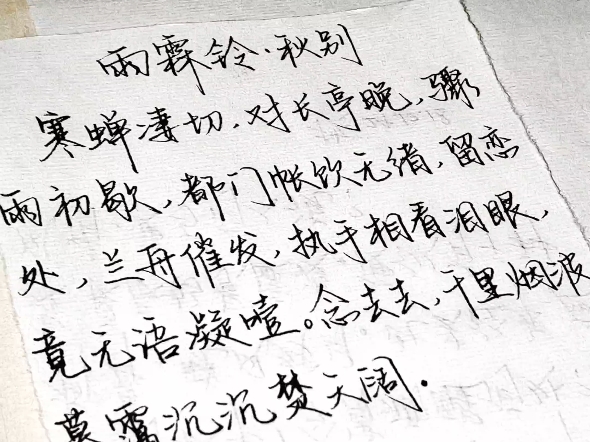 雨霖铃·秋别
寒蝉凄切，对长亭晚，骤
雨初歇，都门帐饮无绪，留恋
处，兰舟催发，执手相看泪眼，
竟无语凝噎。念去去，千里烟波
暮霭沉沉楚天阔.